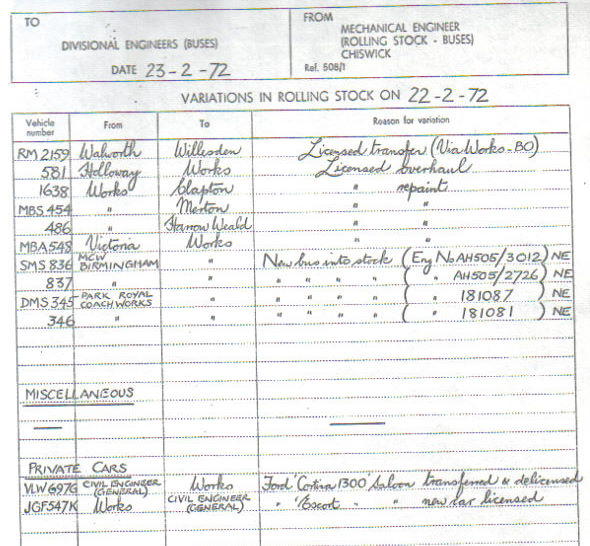 TO
DIVISIONAL ENGINEERS (BUSES)
DATE 23-2-72
FROM
MECHANICAL ENGINEER
(ROLLING STOCK - BUSES)
CHISWICK
Ref. 508/1
VARIATIONS IN ROLLING STOCK ON 22-2-72
Vehicle number From To Reason for variation
RM 2159 Walworth Willesden Licensed transfer (Via Works-BO)
581 Holloway Works Licensed overhaul
1638 Works Clapton " repaint
MBS 454 " Merton " "
486 " Harrow Weald " "
MBA 548 Victoria Works " "
SMS 836 MCW BIRMINGHAM " New bus into stock (Eng No AH505/3012) NE
837 " " " " " " ( " AH505/2726) NE
DMS 345 PARK ROYAL COACHWORKS " " " " " ( " 181087 ) NE
346 " " " " " " ( " 181081 ) NE
MISCELLANEOUS
PRIVATE CARS
VLW 697G CIVIL ENGINEER (GENERAL) Works Ford 'Cortina 1300' Saloon transferred & delicensed
JGF547K Works CIVIL ENGINEER (GENERAL) " 'Escort " " new car licensed